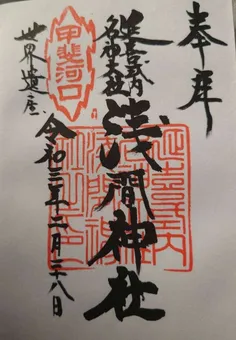 奉拝
延喜式内
名神大社
浅間神社
甲斐河口
世界遺産
令和三年二月二十八日